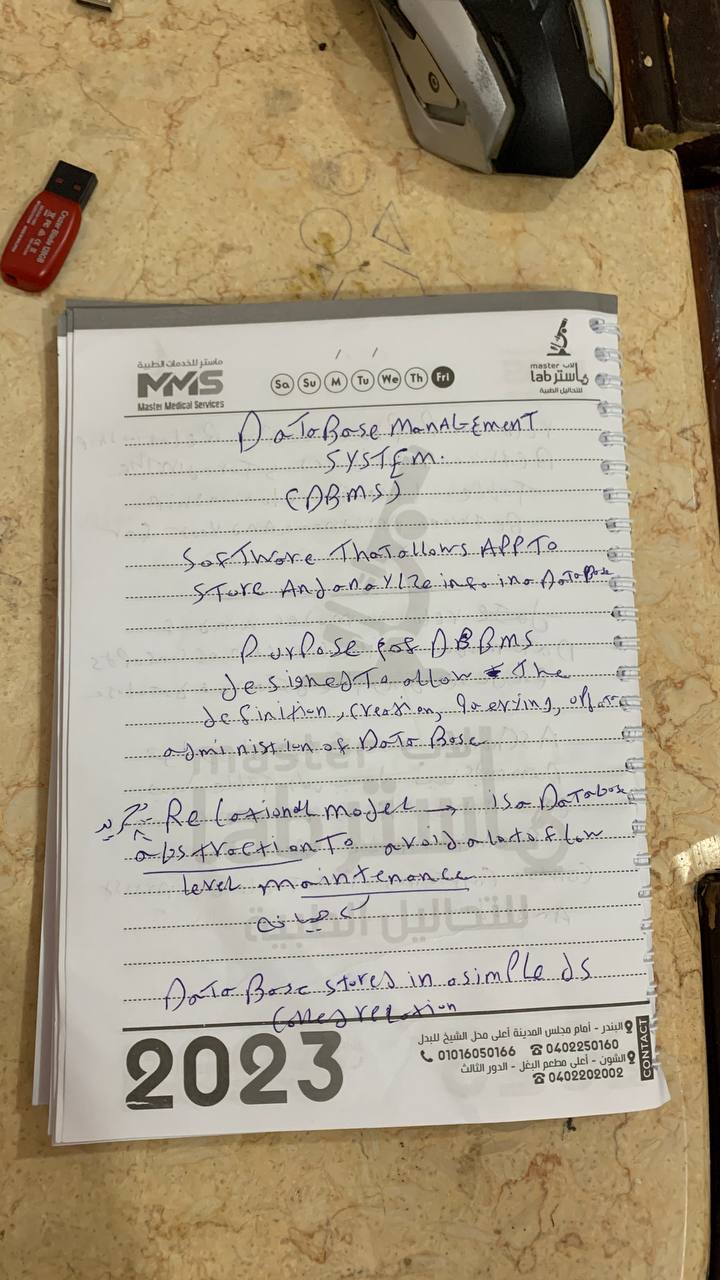 Cruzer Blade 128GB
ماستر للخدمات الطبية
MMS
Master Medical Services
Sa Su M Tu We Th Fri
master لاب
lab ماستر
للتحاليل الطبية
DataBase Management
System.
(DBMS)
Software That allows APP To
Store And analyize info in a DataBase
Purpose for DBBMS
designed To allow The
definition, creation, querying,
administion of Data Base
تجريد Relational model → is a Database
abstraction To avoid a lot of low
level maintenance
صيانه
Data Base stores in a simple ds
called relation
2023
CONTACT
البندر - أمام مجلس المدينة أعلى محل الشيخ للبدل
01016050166 0402250160
الشون - أعلى مطعم البغل - الدور الثالث
0402202002